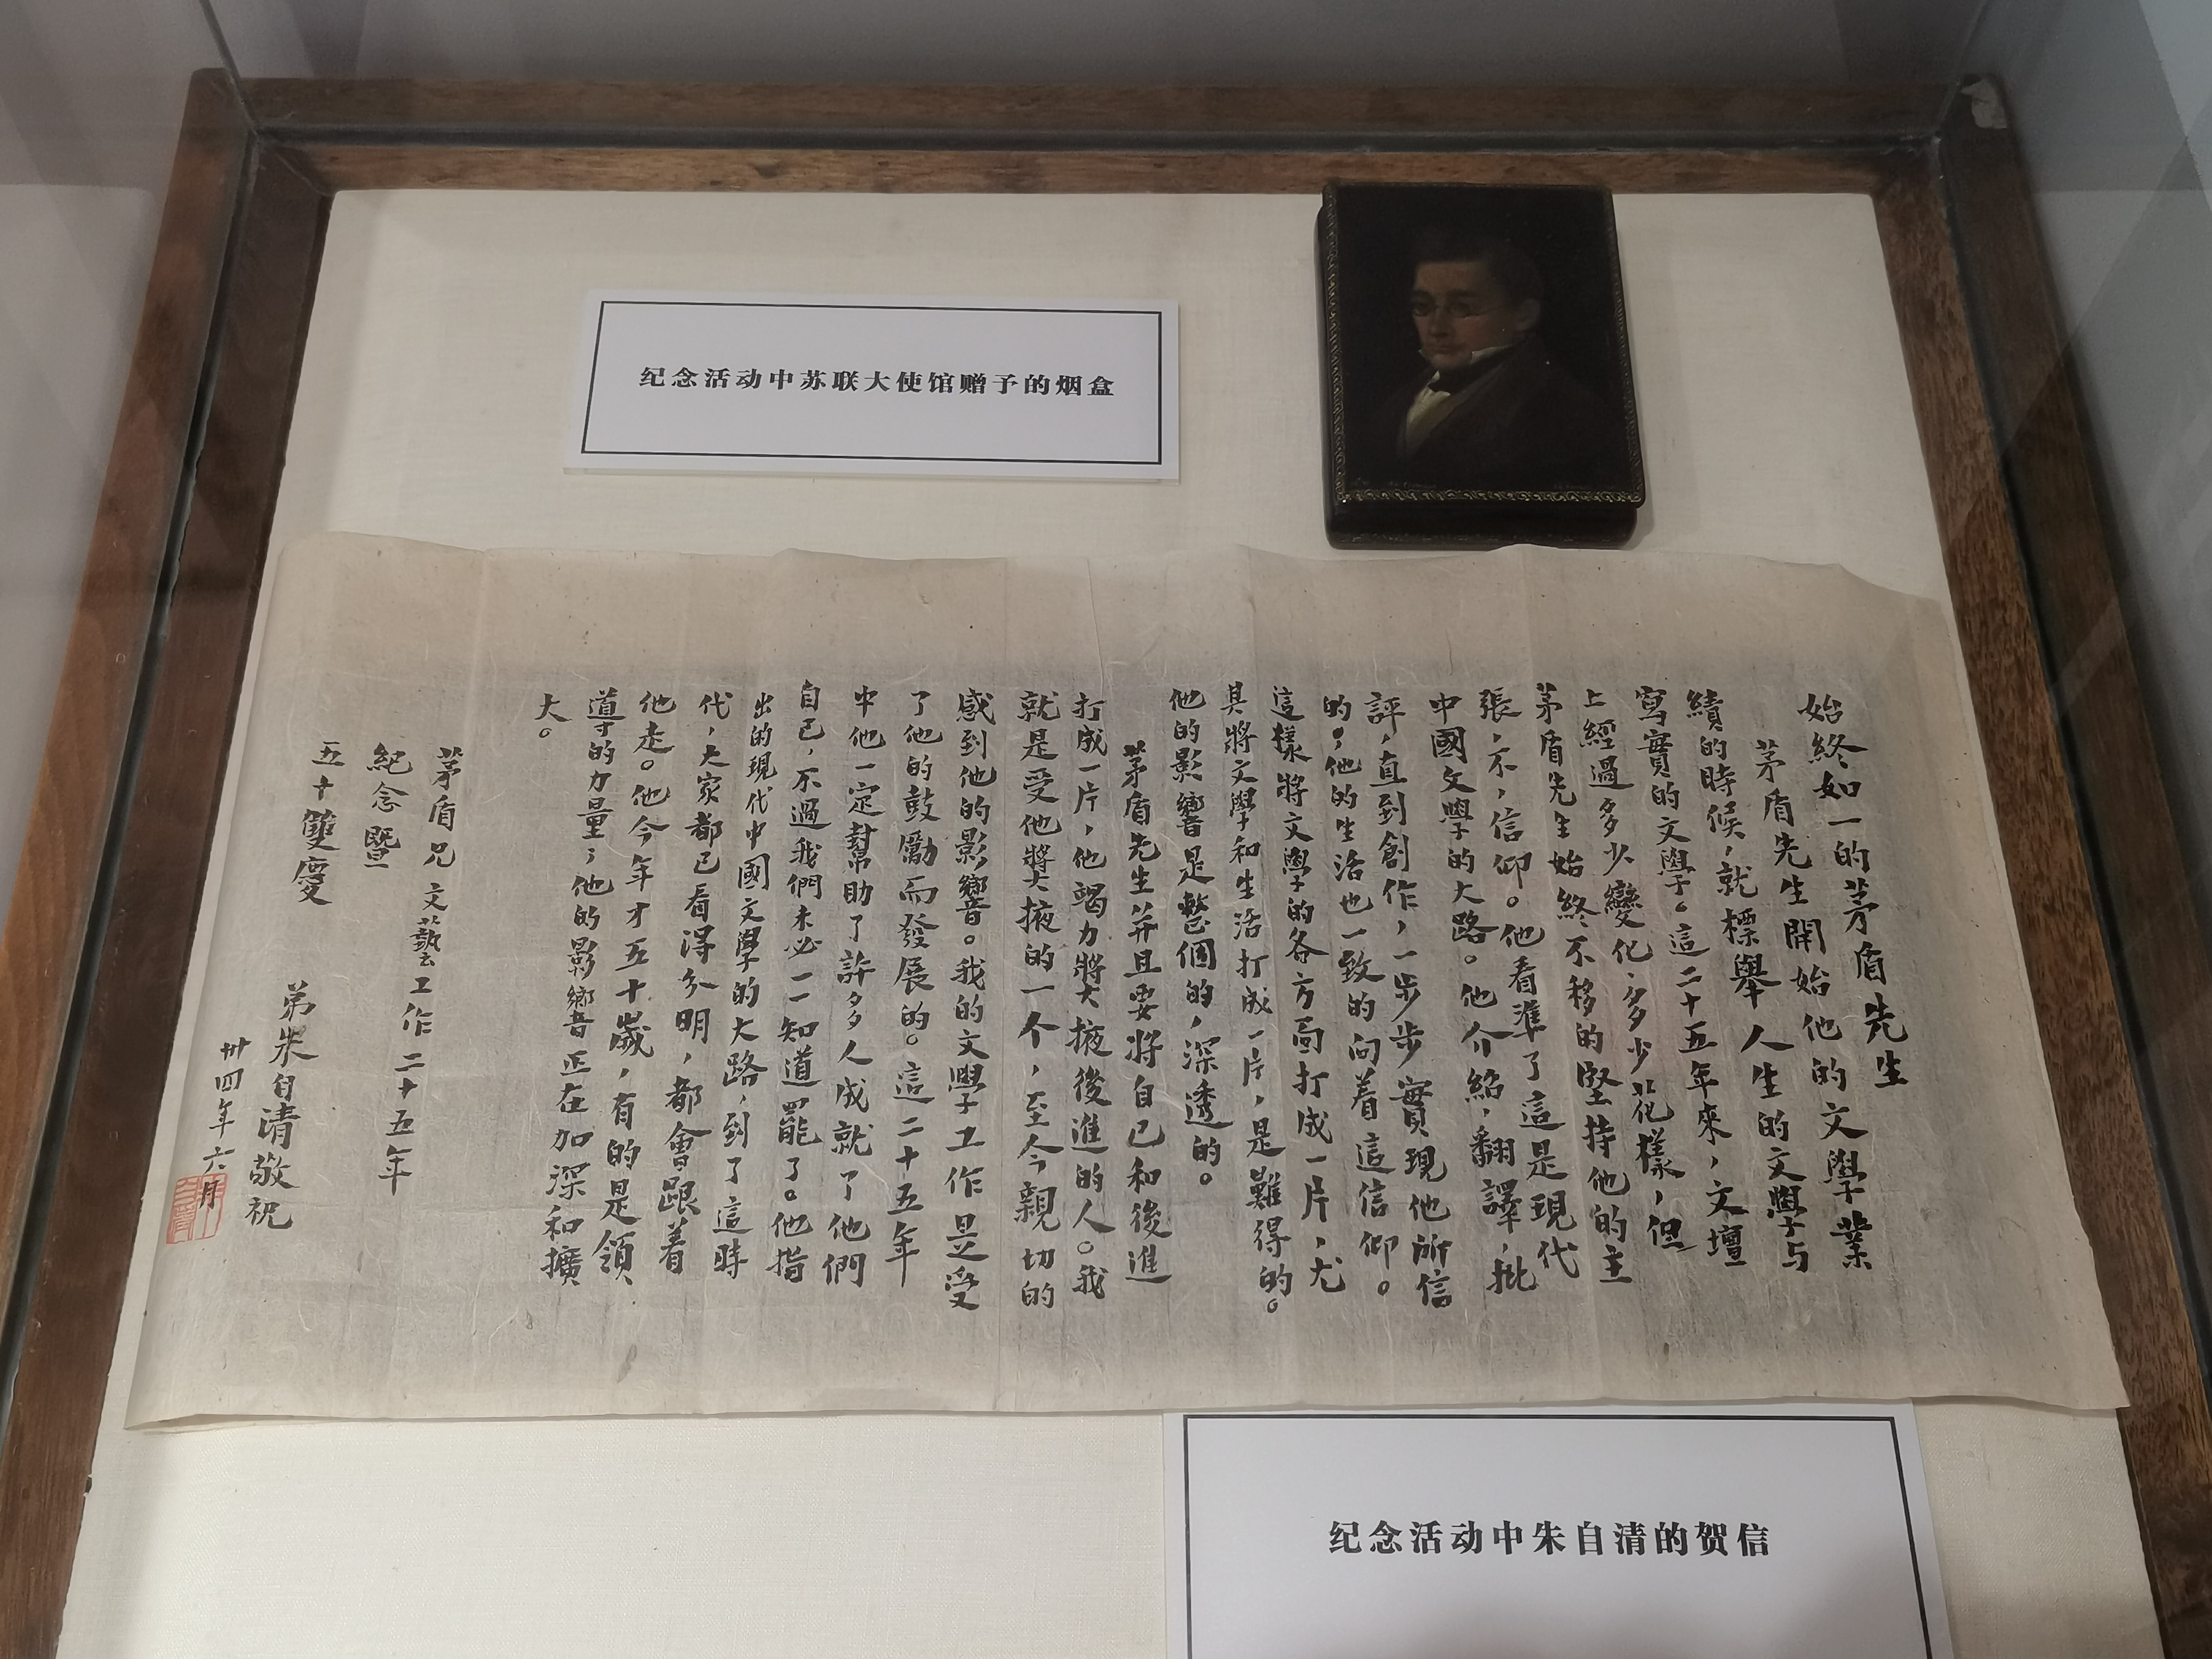 纪念活动中苏联大使馆赠予的烟盒
始終如一的茅盾先生
茅盾先生開始他的文學業
績的時候，就標舉人生的文學与
寫實的文學。這二十五年來，文壇
上經過多少變化，多少花樣，但
茅盾先生始終不移的堅持他的主
張，不，信仰。他看準了這是現代
中國文學的大路。他介紹，翻譯，批
評，直到創作，一步步實現他所信
的，他的生活也一致的向着這信仰。
這樣將文學的各方面打成一片，尤
其將文學和生活打成一片，是難得的。
他的影響是整個的，深透的。
茅盾先生并且要將自己和後進
打成一片，他竭力獎掖後進的人。我
就是受他獎掖的一个，至今親切的
感到他的影響。我的文學工作是受
了他的鼓勵而發展的。這二十五年
中他一定幫助了許多人成就了他們
自己，不過我們未必一一知道罷了。他指
出的現代中國文學的大路，到了這時
代，大家都已看得分明，都會跟着
他走。他今年才五十歲，有的是領
導的力量；他的影響正在加深和擴
大。
茅盾兄文藝工作二十五年
紀念暨
五十雙慶
弟朱自清敬祝
卅四年六月
纪念活动中朱自清的贺信